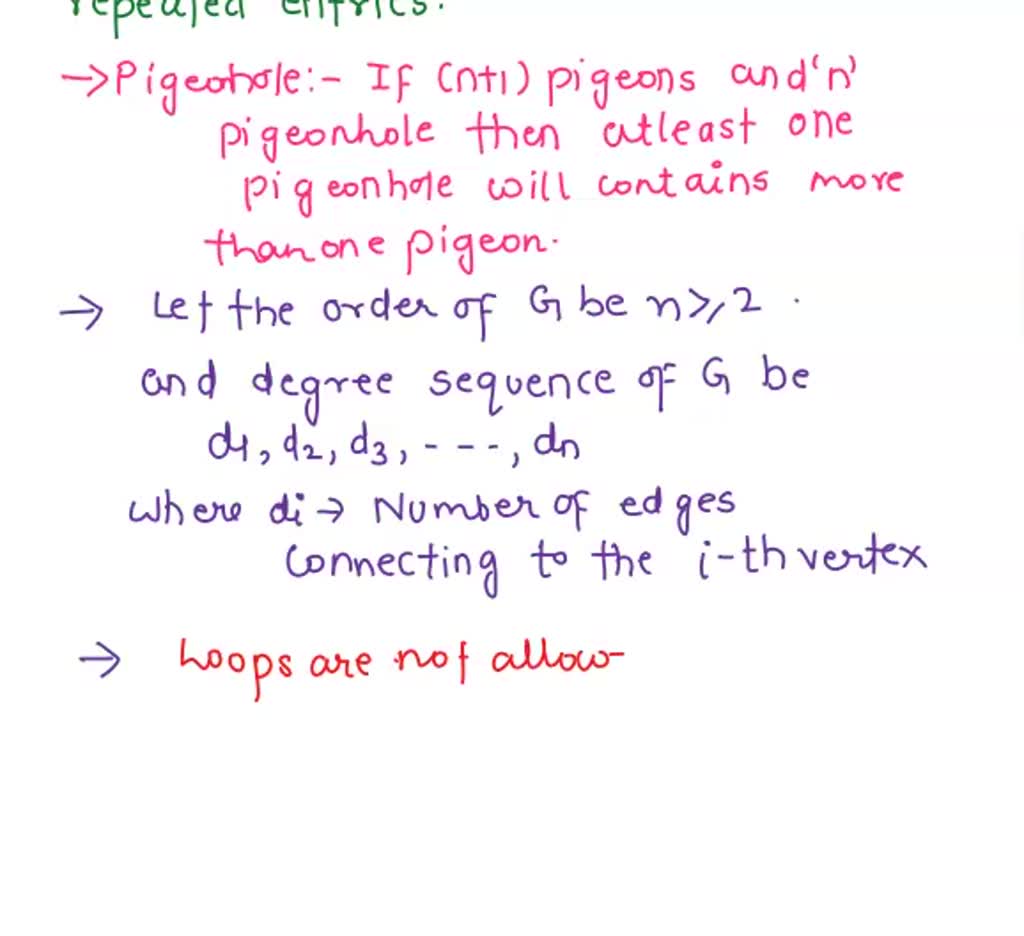 repeated entries.
→Pigeohole:- If (n+1) pigeons and 'n'
pigeonhole then atleast one
pigeonhole will contains more
than one pigeon.
→ Let the order of G be n≥2.
and degree sequence of G be
d1, d2, d3, ----, dn
where di → Number of edges
connecting to the i-th vertex
→ Loops are not allow-